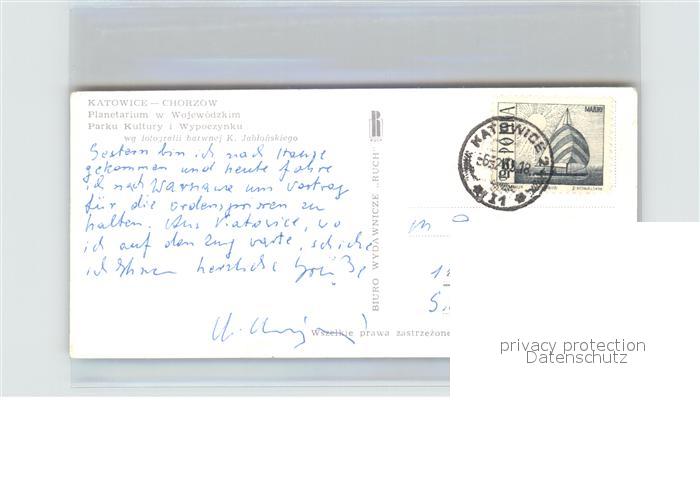 KATOWICE — CHORZÓW
Planetarium w Wojewódzkim
Parku Kultury i Wypoczynku
wg fotografii barwnej K. Jabłońskiego
Gestern bin ich nach Hause
gekommen und heute fahre
ich nach Warszawa um Vortrag
für die Ordenspriorinnen zu
halten. Aus Katowice, wo
ich auf den Zug warte, schicke
ich Ihnen herzliche Grüße
BIURO WYDAWNICZE „RUCH"
MAZURY
POLSKA
KATOWICE 2
Wszelkie prawa zastrzeżone
privacy protection
Datenschutz